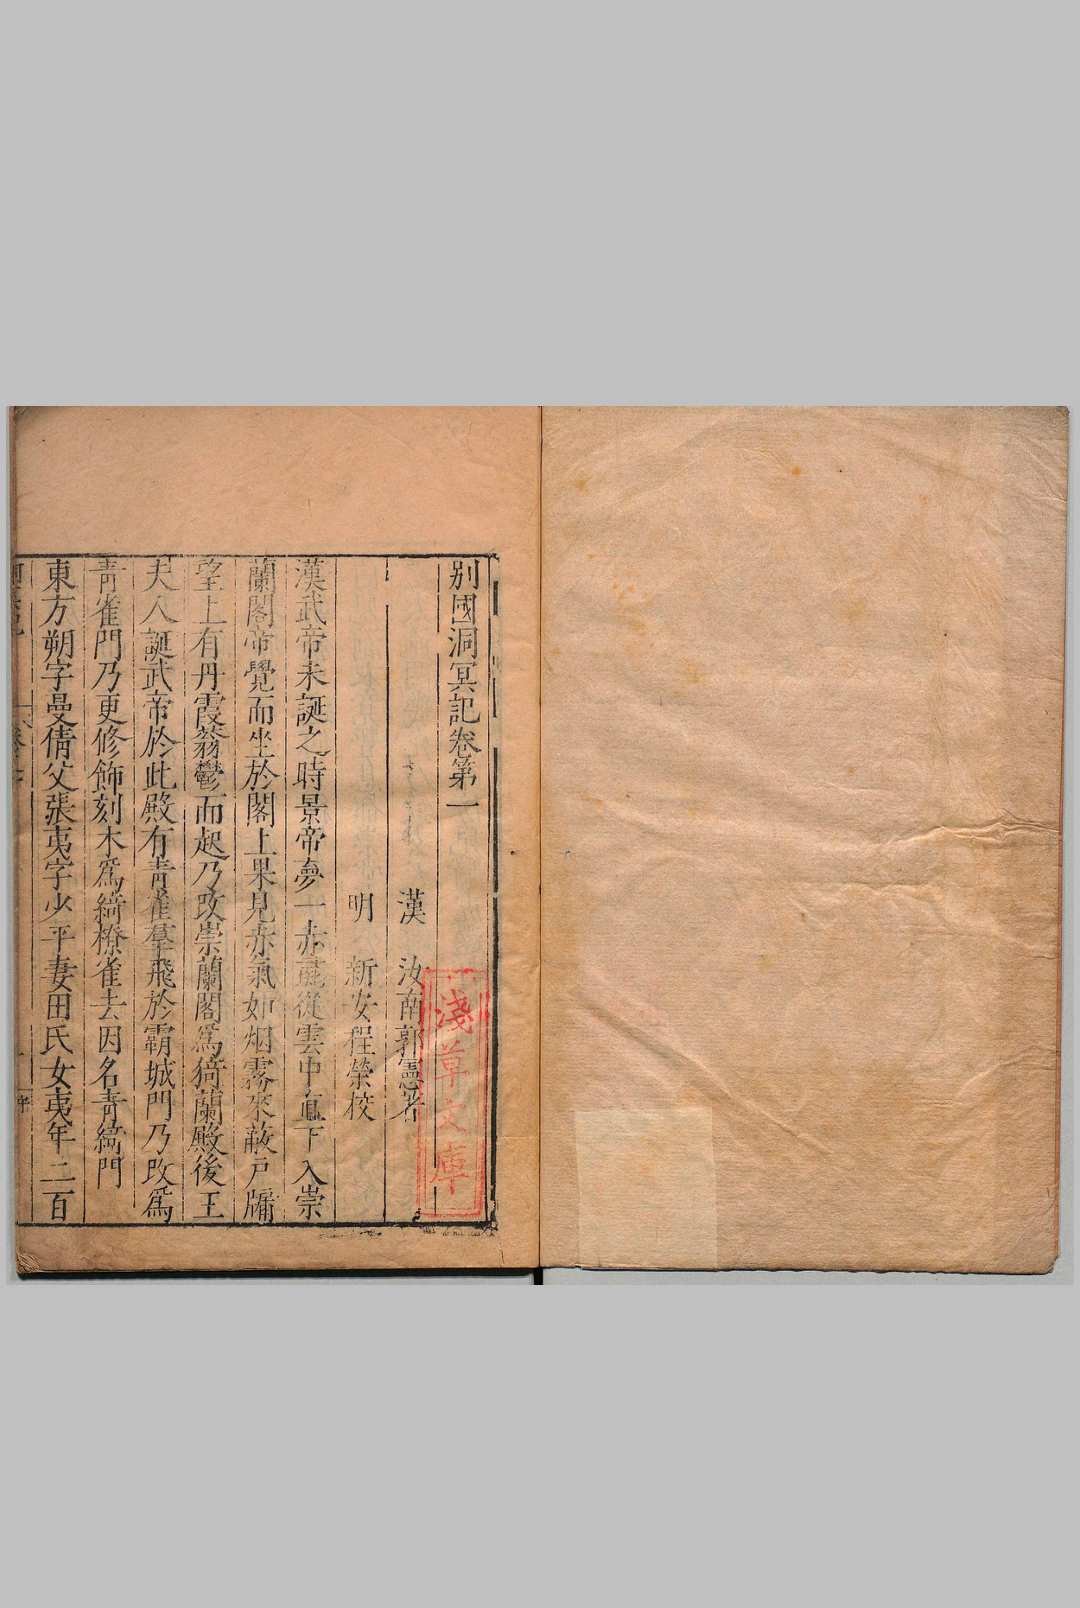 别國洞冥記卷第一
漢　汝南郭憲著
明　新安程榮校
漢武帝未誕之時景帝夢一赤彘從雲中直下入崇
蘭閣帝覺而坐於閣上果見赤氣如烟霧來蔽戸牖
望上有丹霞蓊鬱而起乃改崇蘭閣爲猗蘭殿後王
夫人誕武帝於此殿有青雀羣飛於霸城門乃改爲
青雀門乃更修飾刻木爲綺橑雀去因名青綺門
東方朔字曼倩父張夷字少平妻田氏女夷年二百
淺草文庫